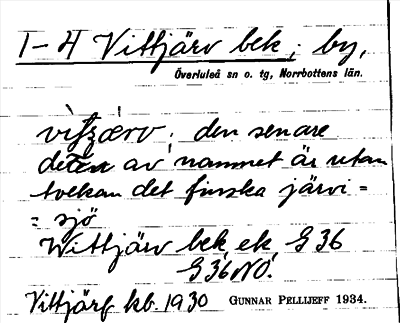 1-4 Vittjärv bek.; by,
Överluleå sn o. tg, Norrbottens län.
den senare
delen av namnet är utan
tvekan det finska järvi =
= sjö
Wittjärv bek, ek. G 36
G 36 NO.
Vittjärf kb. 1930 GUNNAR PELLIJEFF 1934.